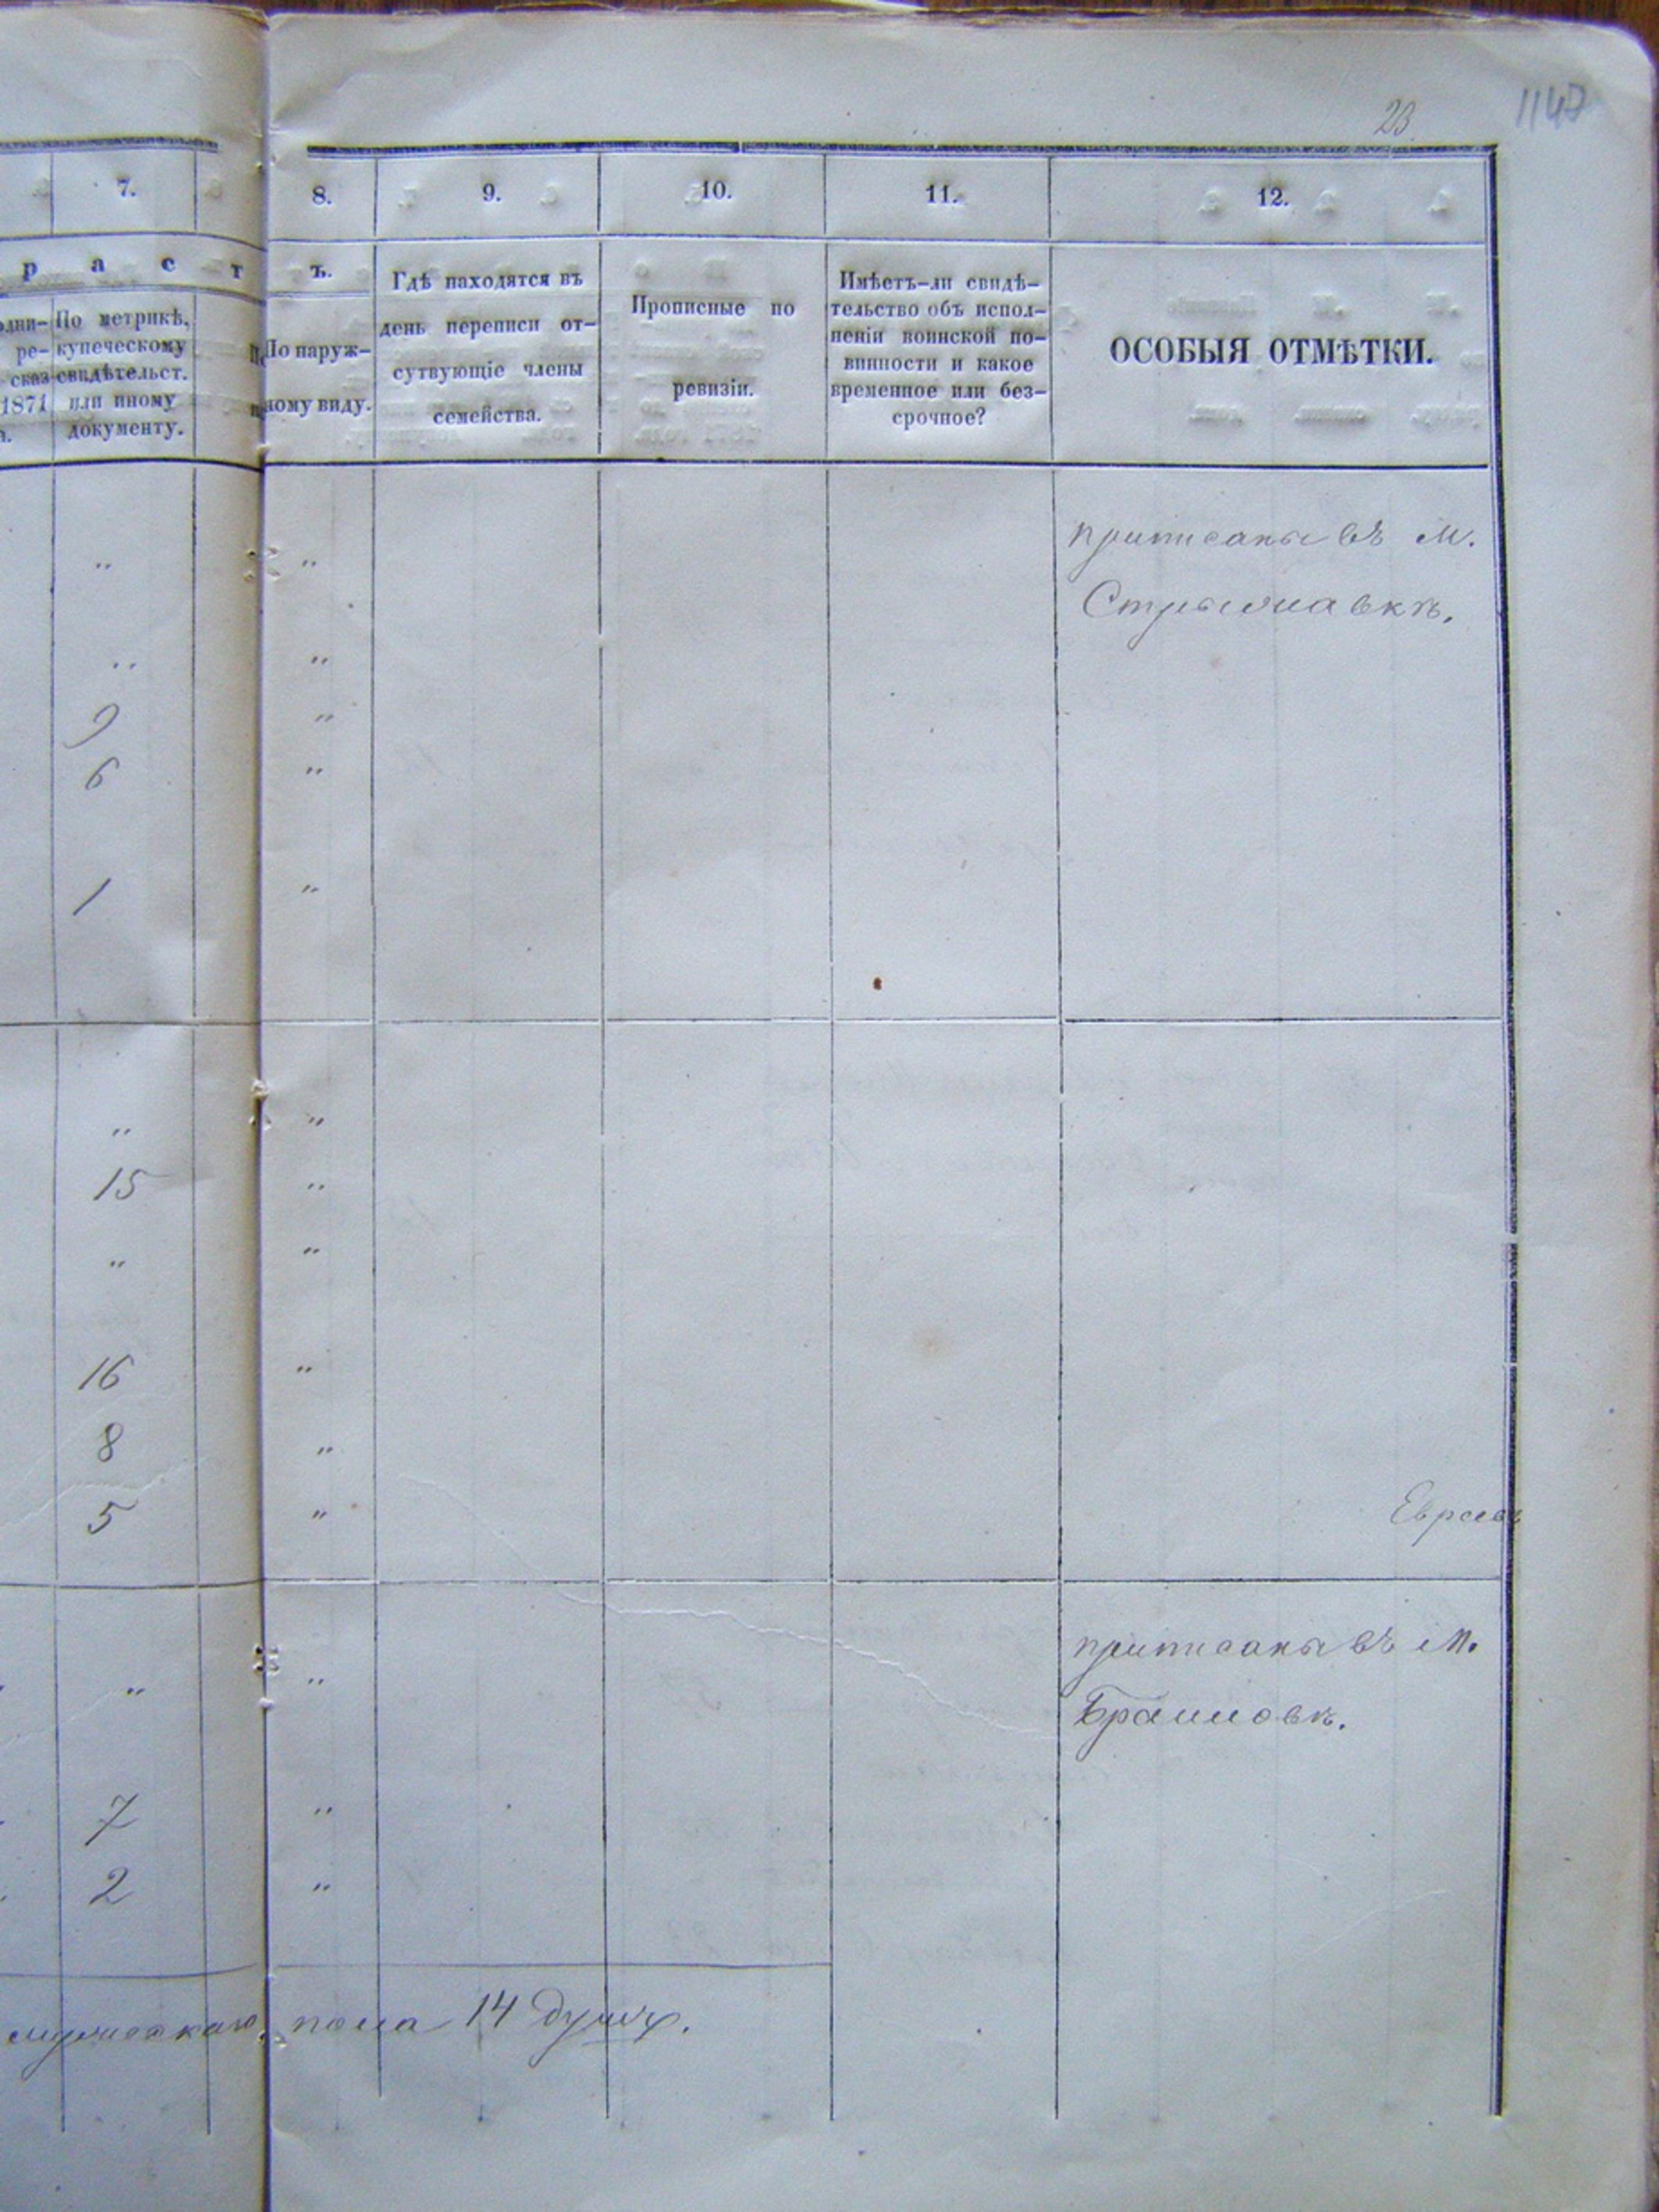 23
1147
7.
8.
9.
10.
11.
12.
р а с т
ъ.
По метрикѣ,
купеческому
свидѣтельст.
или иному
документу.
1871
По наруж-
ному виду.
Гдѣ находятся въ
день переписи от-
сутвующіе члены
семейства.
Прописные по
ревизіи.
Имѣетъ-ли свидѣ-
тельство объ испол-
неніи воинской по-
винности и какое
временное или без-
срочное?
ОСОБЫЯ ОТМѢТКИ.
приписаны въ м.
Стрыжавкѣ.
" "
" "
9 "
6 "
1 "
" "
15 "
" "
16 "
8 "
5 "
Евреевъ
приписаны въ м.
" "
7 "
2 "
мужескаго пола 14 душъ.